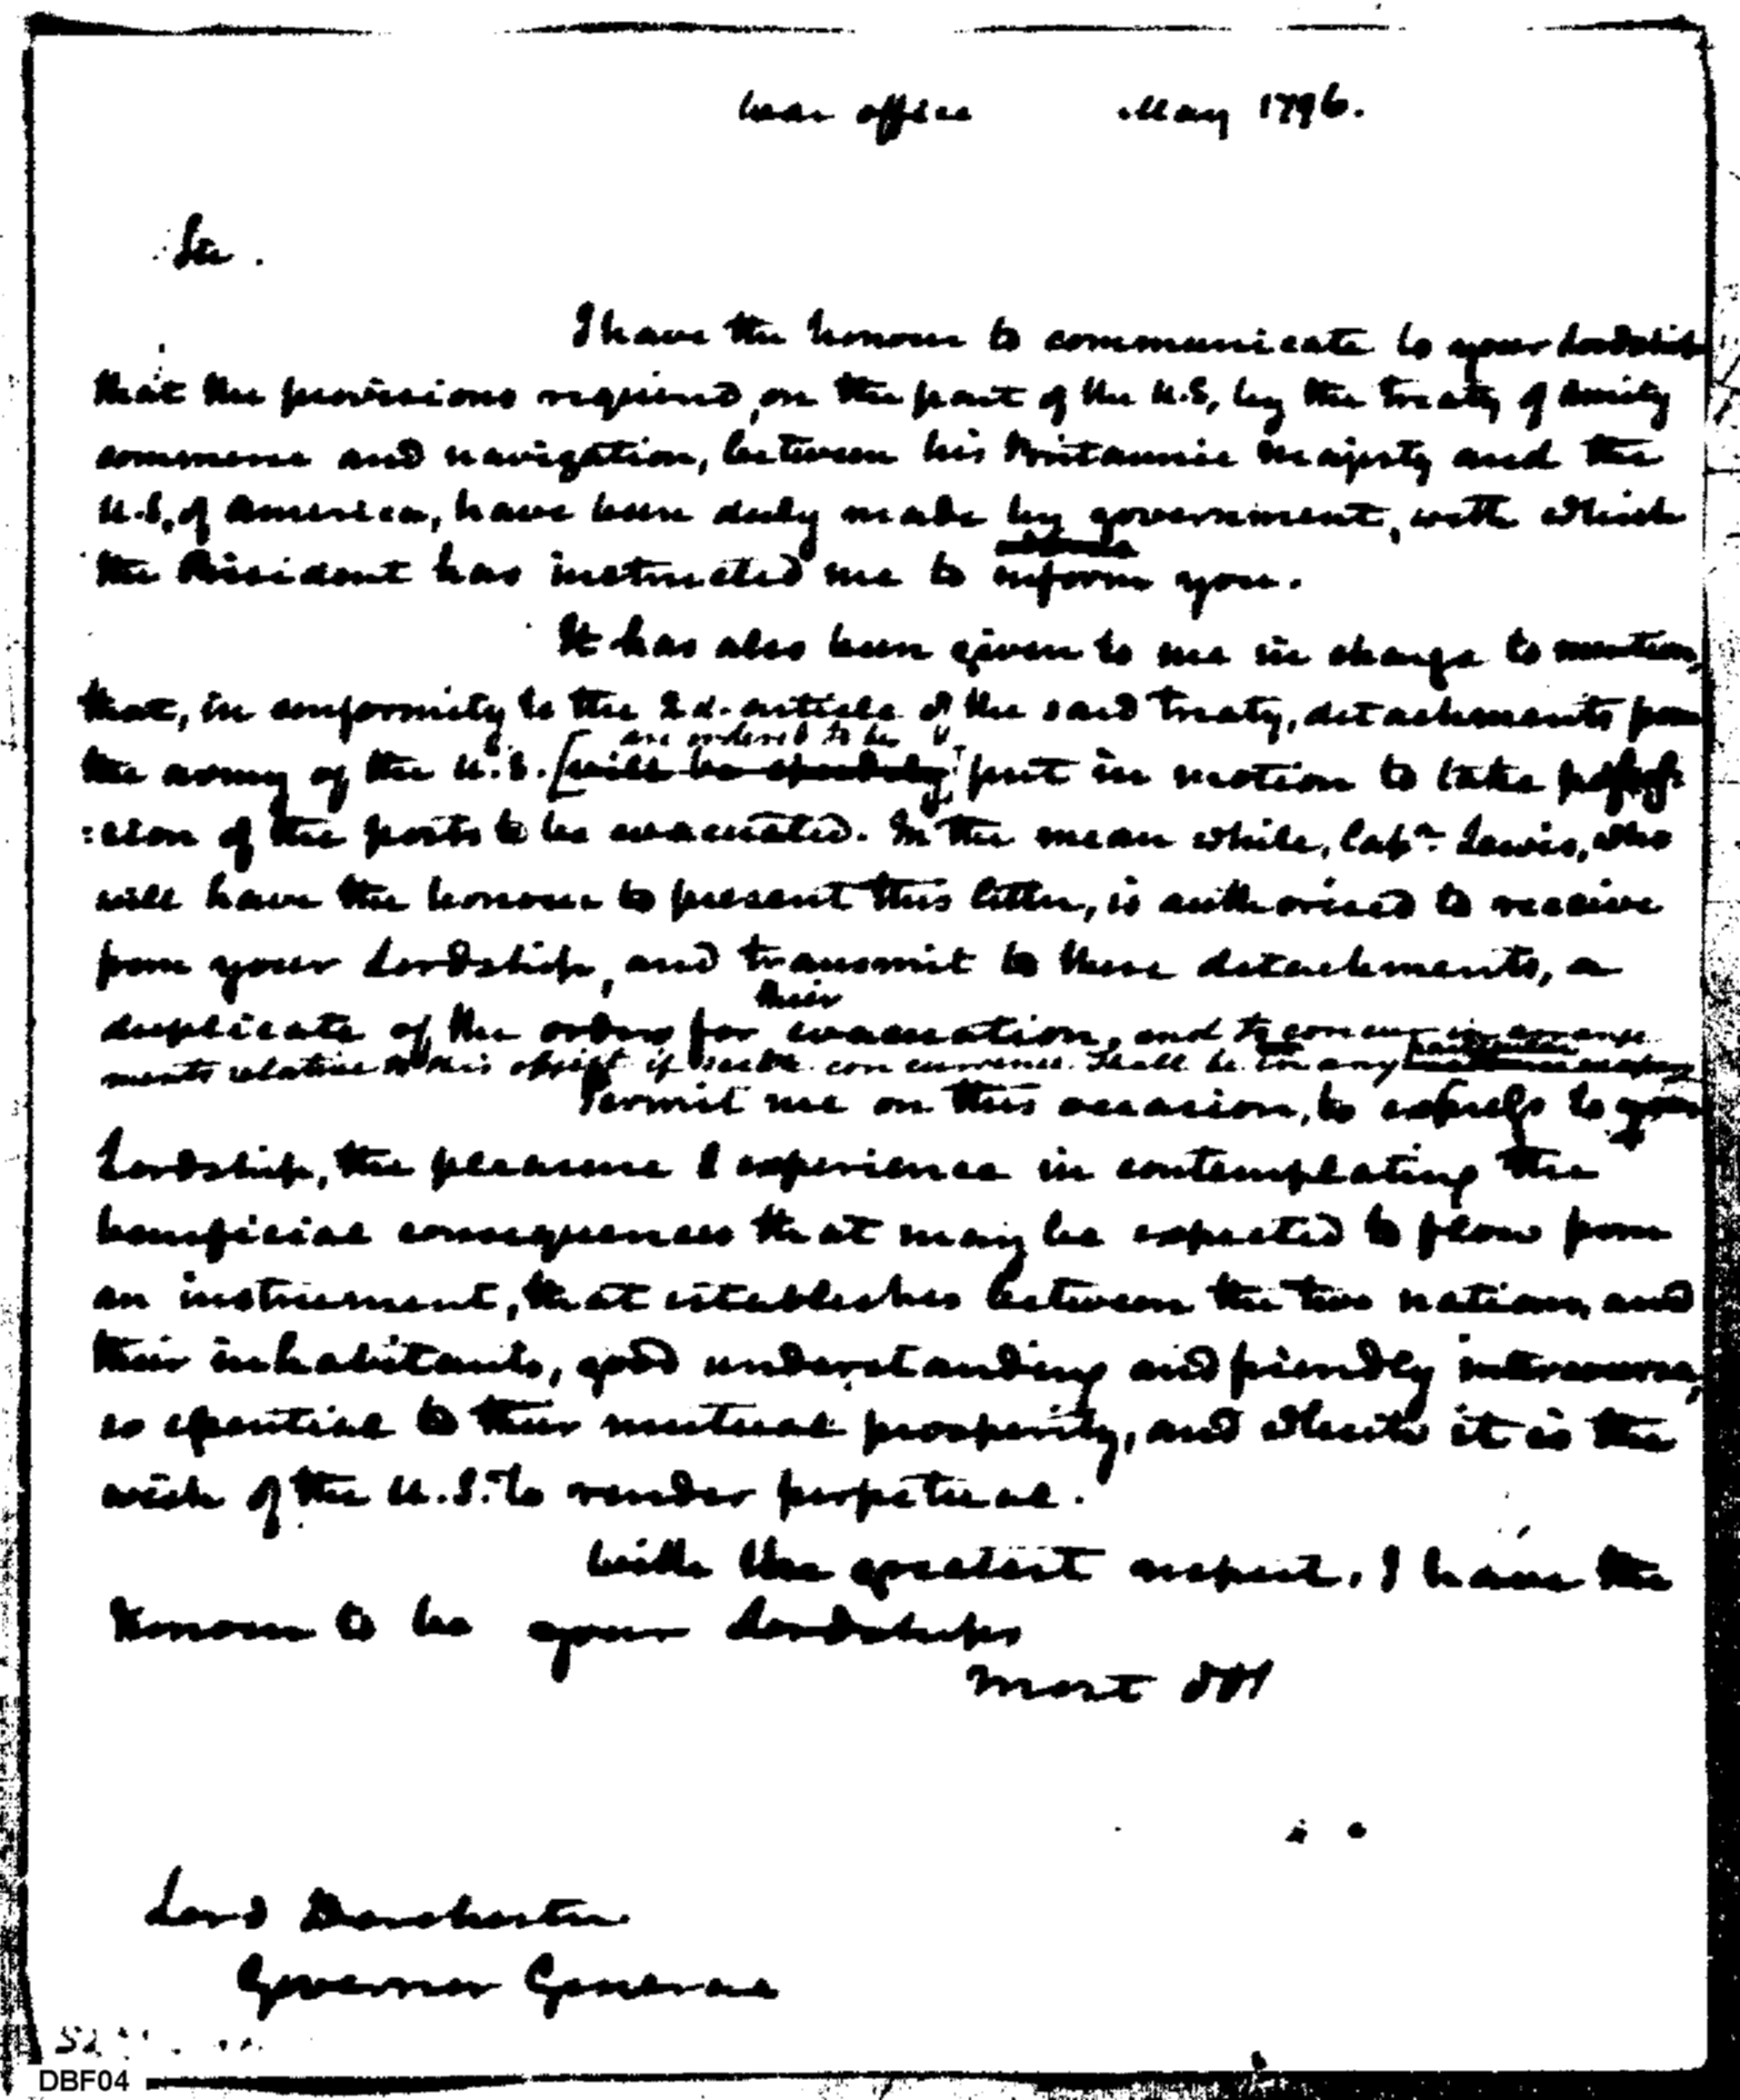 War office May 1796.
Sir.
I have the honour to communicate to your Lordship
that the provisions required, on the part of the U.S, by the treaty of amity
commerce and navigation, between his Britannic Majesty and the
U.S. of America, have been duly made by government, with which
the President has instructed me to inform you.
It has also been given to me in charge to mention,
that, in conformity to the 2d. article of the said treaty, detachments from
are ordered to be
the army of the U.S. [will be speedily] put in motion to take possess
:sion of the posts to be evacuated. In the mean while, Capn. Lewis, who
will have the honour to present this letter, is authorised to receive
from your Lordship, and transmit to these detachments, a
their
duplicate of the orders for evacuation, and to concur in arrange
ments relative to this object if such concurrence shall be in any
Permit me on this occasion, to express to your
Lordship, the pleasure I experience in contemplating the
beneficial consequences that may be expected to flow from
an instrument, that establishes between the two nations, and
their inhabitants, good understanding and friendly intercourse,
so essential to their mutual prosperity, and which it is the
wish of the U.S. to render perpetual.
With the greatest respect, I have the
Honour to be your Lordships
most obt
Lord Dorchester
Governor General
DBF04